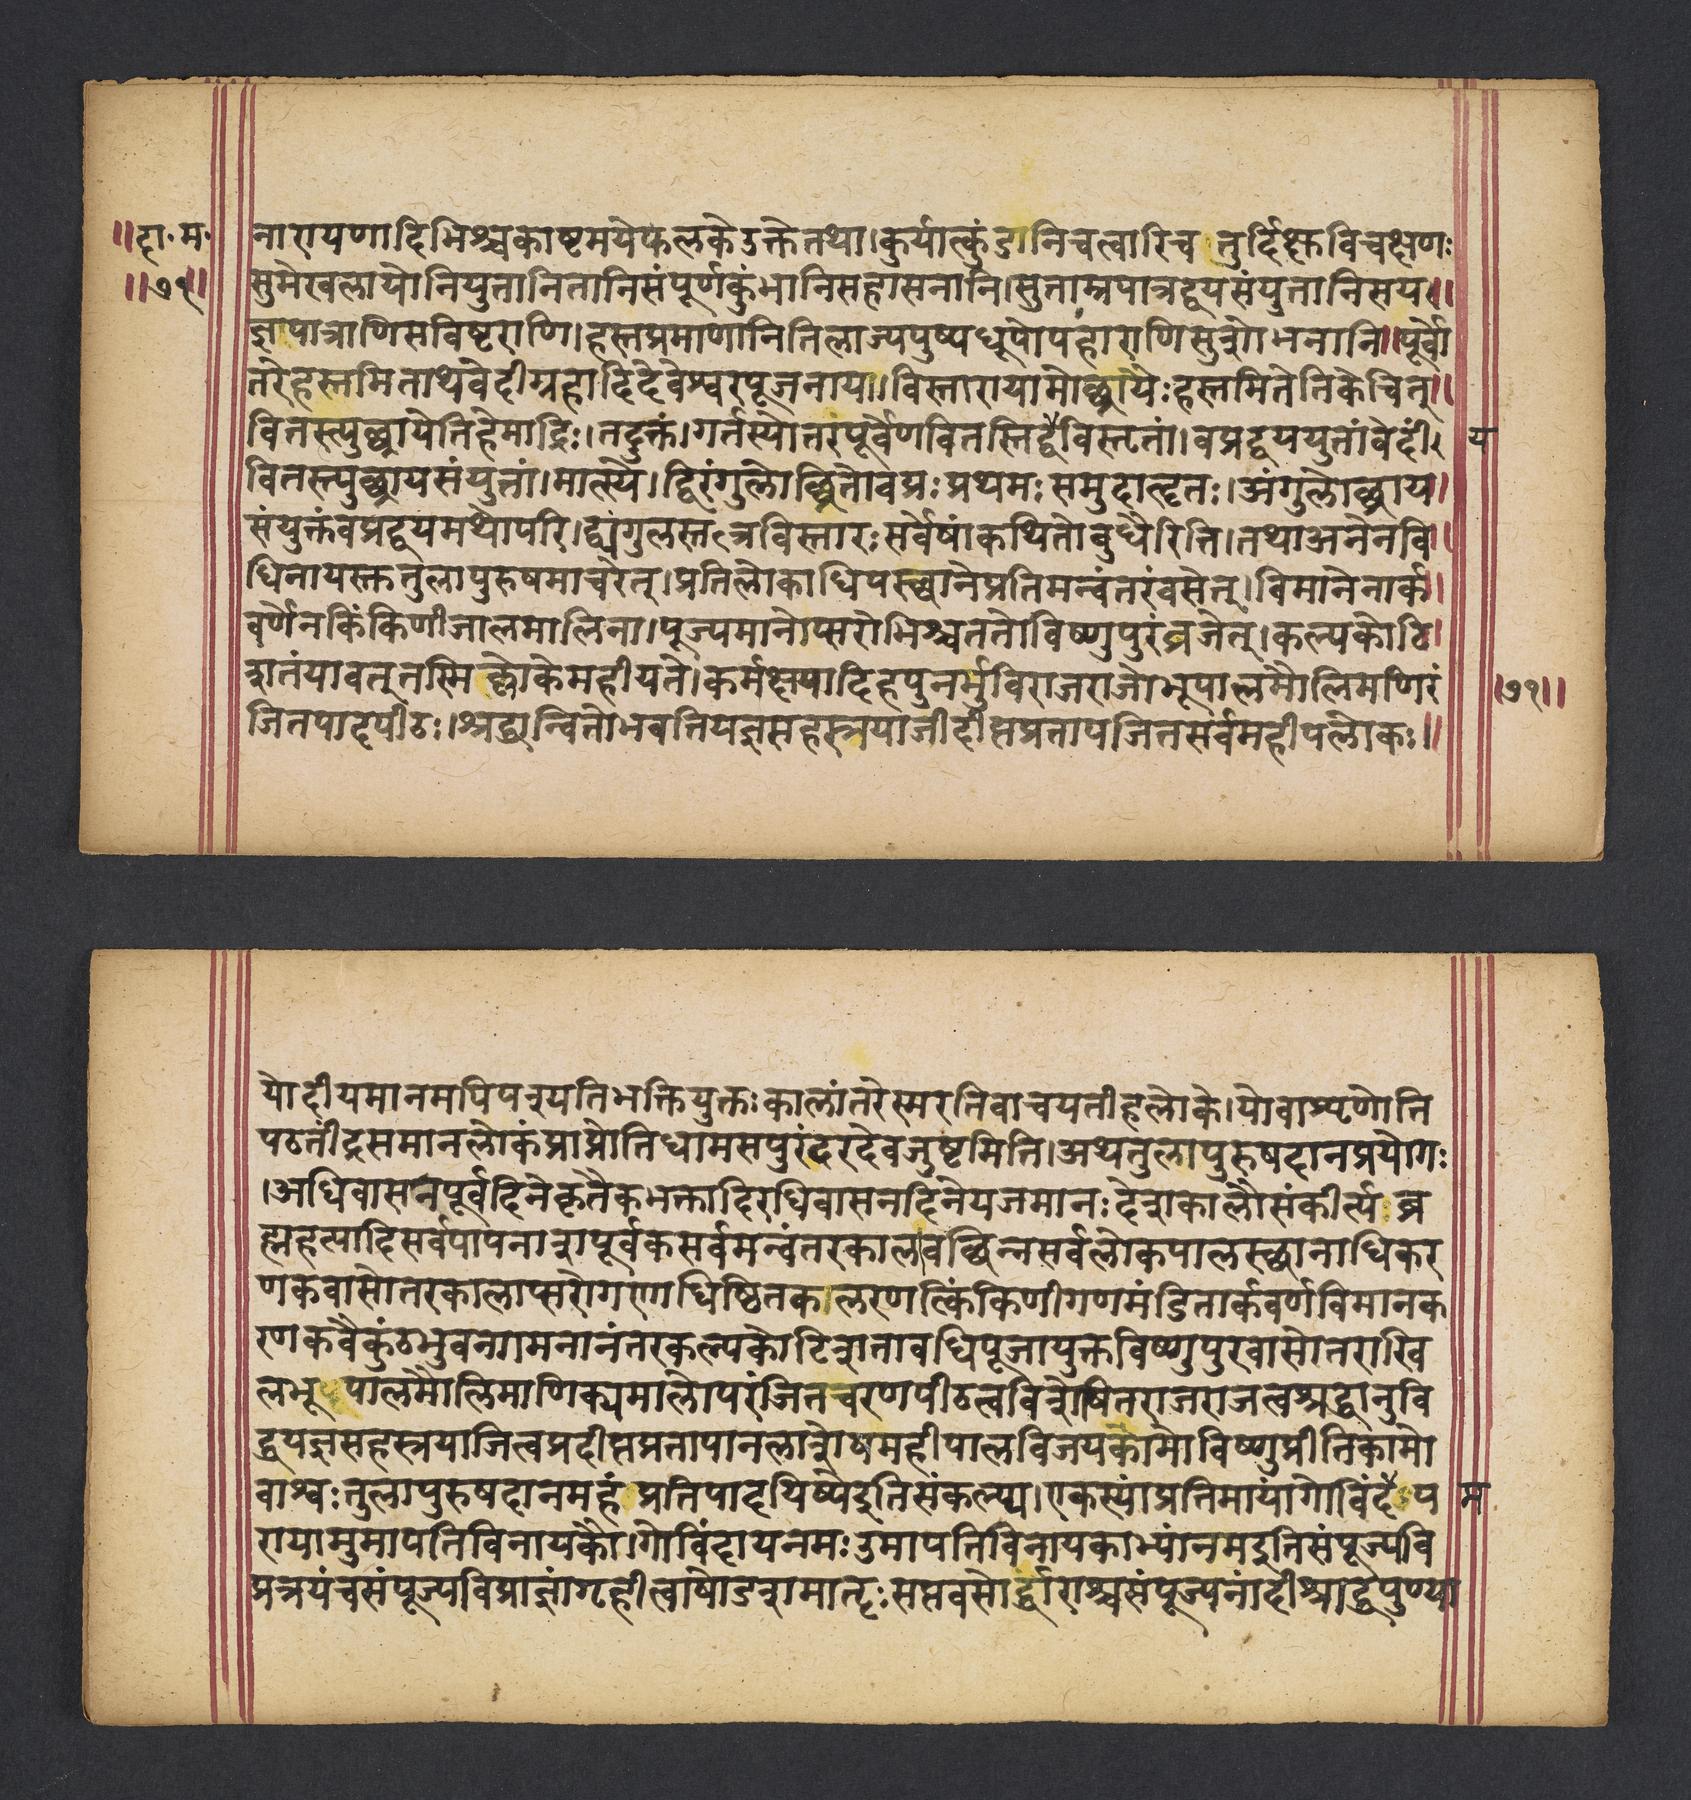 ॥दा॰म॰
॥७१॥
नारायणादिभिश्चकाष्टमयेफलकेउक्तेतथा।कुर्यात्कुंडानिचत्वारिच तुर्दिक्षुविचक्षणः
सुमेखलायोनियुतानितानिसंपूर्णकुंभानिसहासनानि।सुताम्रपात्रद्वयसंयुतानिसय॥
ज्ञपात्राणिसविष्टराणि।हस्तप्रमाणानितिलाज्यपुष्पधूपोपहाराणिसुशोभनानि॥पूर्वो
त्तरेहस्तमिताथवेदीग्रहादिदेवेश्वरपूजनाय॥विस्तारायामोच्छ्रायैःहस्तमितेतिकेचित्॥
वितस्त्युच्छ्रायेतिहेमाद्रिः।तदुक्तं।गर्तस्योत्तरपूर्वेणवितस्तिद्वयविस्तृतां।वप्रद्वययुतांवेदीं।
य
वितस्त्युच्छ्रायसंयुतां।मात्स्ये।द्विरंगुलोच्छ्रितोवप्रःप्रथमःसमुदाहृतः।अंगुलोच्छ्राय।
संयुक्तंवप्रद्वयमथोपरि।द्व्यंगुलस्तत्रविस्तारःसर्वेषांकथितोबुधैरिति।तथाअनेनवि॥
धिनायस्तुतुलापुरुषमाचरेत्।प्रतिलोकाधिपस्थानेप्रतिमन्वंतरंवसेत्।विमानेनार्क।
वर्णेनकिंकिणीजालमालिना।पूज्यमानोप्सरोभिश्चततोविष्णुपुरंव्रजेत्।कल्पकोटि।
शतंयावत्तस्मिल्लोकेमहीयते।कर्मक्षयादिहपुनर्भुविराजराजोभूपालमौलिमणिरं
॥७१॥
जितपादपीठः।श्रद्धान्वितोभवतियज्ञसहस्त्रयाजीदीप्तप्रतापजितसर्वमहीपलोकः।॥
योदीयमानमपिपश्यतिभक्तियुक्तःकालांतरेस्मरतिवाचयतीहलोके।योवाश्रृणोति
पठतींद्रसमानलोकंप्राप्नोतिधामसपुरंदरदेवजुष्टमिति।अथतुलापुरुषदानप्रयोगः
।अधिवासनपूर्वदिनेकृतैकभक्तादिरधिवासनदिनेयजमानःदेशकालौसंकीर्त्य ब्र
ह्महत्यादिसर्वपापनाशपूर्वकसर्वमन्वंतरकालावच्छिन्नसर्वलोकपालस्थानाधिकर
णकवासोत्तरकालाप्सरोगणाधिष्ठितकालरणत्किंकिणीगणमंडितार्कवर्णविमानक
रणकवैकुंठभुवनगमनानंतरकल्पकोटिशतावधिपूजायुक्तविष्णुपुरवासोत्तराखि
लभू पालमौलिमाणिक्यमालोपरंजितचरणपीठत्वविशेषितराजराजत्वश्रद्धानुवि
द्धयज्ञसहस्त्रयाजित्वप्रदीप्तप्रतापानलाशेषमहीपालविजयकामोविष्णुप्रीतिकामो
वाश्वःतुलापुरुषदानमहं प्रतिपादयिष्येइतिसंकल्प्य।एकस्यांप्रतिमायांगोविंद प
म
रायामुमापतिविनायकौ।गोविंदायनमःउमापतिविनायकाभ्यांनमइतिसंपूज्यवि
प्रत्रयंचसंपूज्यविप्राज्ञांगृहीत्वाषोडशमातृःसप्तवसोर्द्धाराश्चसंपूज्यनांदीश्राद्धपुण्या